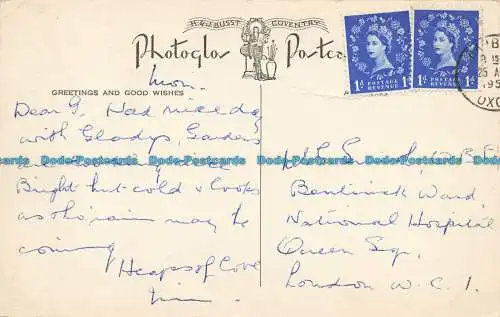 H & J BUSST COVENTRY
Photoglos Postca
GREETINGS AND GOOD WISHES
1d POSTAGE REVENUE 1d
1d POSTAGE REVENUE 1d
25 A
195
OXO
Mon.
Dear G. Had nice day
with Gladys, Gardens
Bright but cold & looks
as tho rain may be
coming
Heaps of love
Bentinck Ward,
National Hospital
Queen Sq,
London W.C.1.
Dodo-Postcards.com Dodo-Postcards.com Dodo-Postcards.com Dodo-Postcards.com